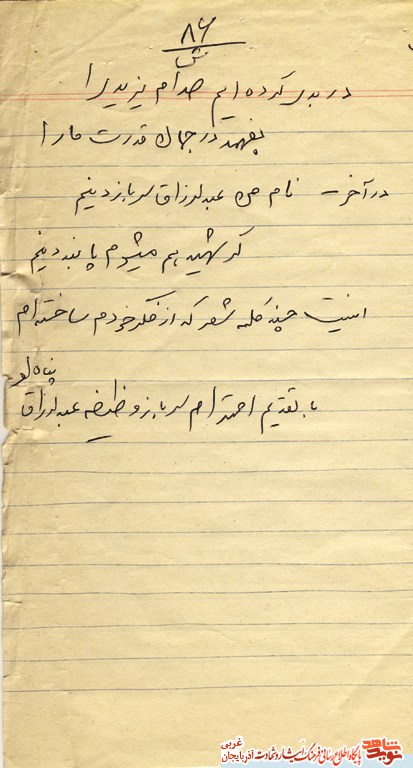 ۸۶
ش
در بدر کرده ایم صدام یزید را
بفهمد در جهان قدرت ما را
در آخر - نام من عبدالرزاق سرباز دینم
گر شهید هم میشوم پابند دینم
اینست چند کلمه شعر که از فکر خودم ساخته ام
با تقدیم احترام سرباز وظیفه عبدالرزاق پناه لو
نوید شاهد
پایگاه اطلاع رسانی فرهنگ ایثار و شهادت آذربایجان غربی